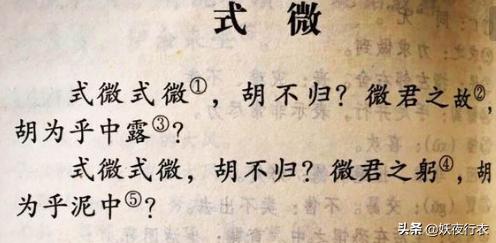 式微
式微式微①，胡不归？微君之故②，
胡为乎中露③？
式微式微，胡不归？微君之躬④，胡
为乎泥中⑤？
头条 @妖夜行衣